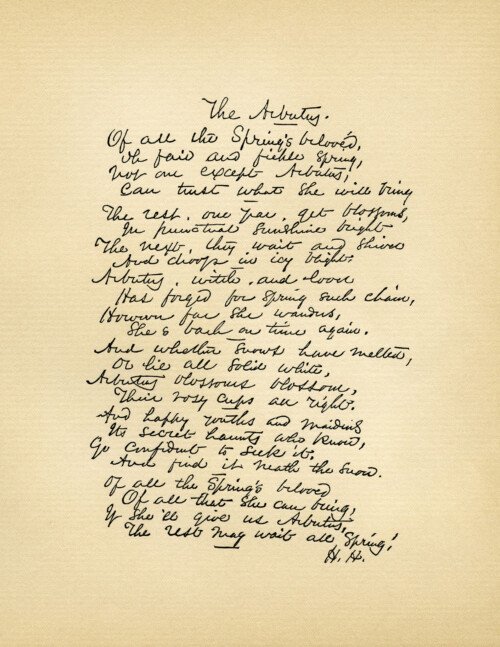 The Arbutus.
Of all the Spring's belovéd,
Oh fair and fickle Spring,
Not one except Arbutus,
Can trust what she will bring
The rest, one year, get blossoms,
In punctual sunshine bright
The next, they wait and shiver
And droop in icy blight.
Arbutus, witch, and lover
Has forged for Spring such chain,
However far she wanders,
She's back on time again.
And whether snows have melted,
Or lie all solid white,
Arbutus blossoms blossom,
Their rosy cups all right.
And happy youths and maidens
Its secret haunts who know,
Go confident to seek it.
And find it neath the snow.
Of all the Spring's beloved
Of all that she can bring,
If she'll give us Arbutus,
The rest may wait all Spring!
H. H.